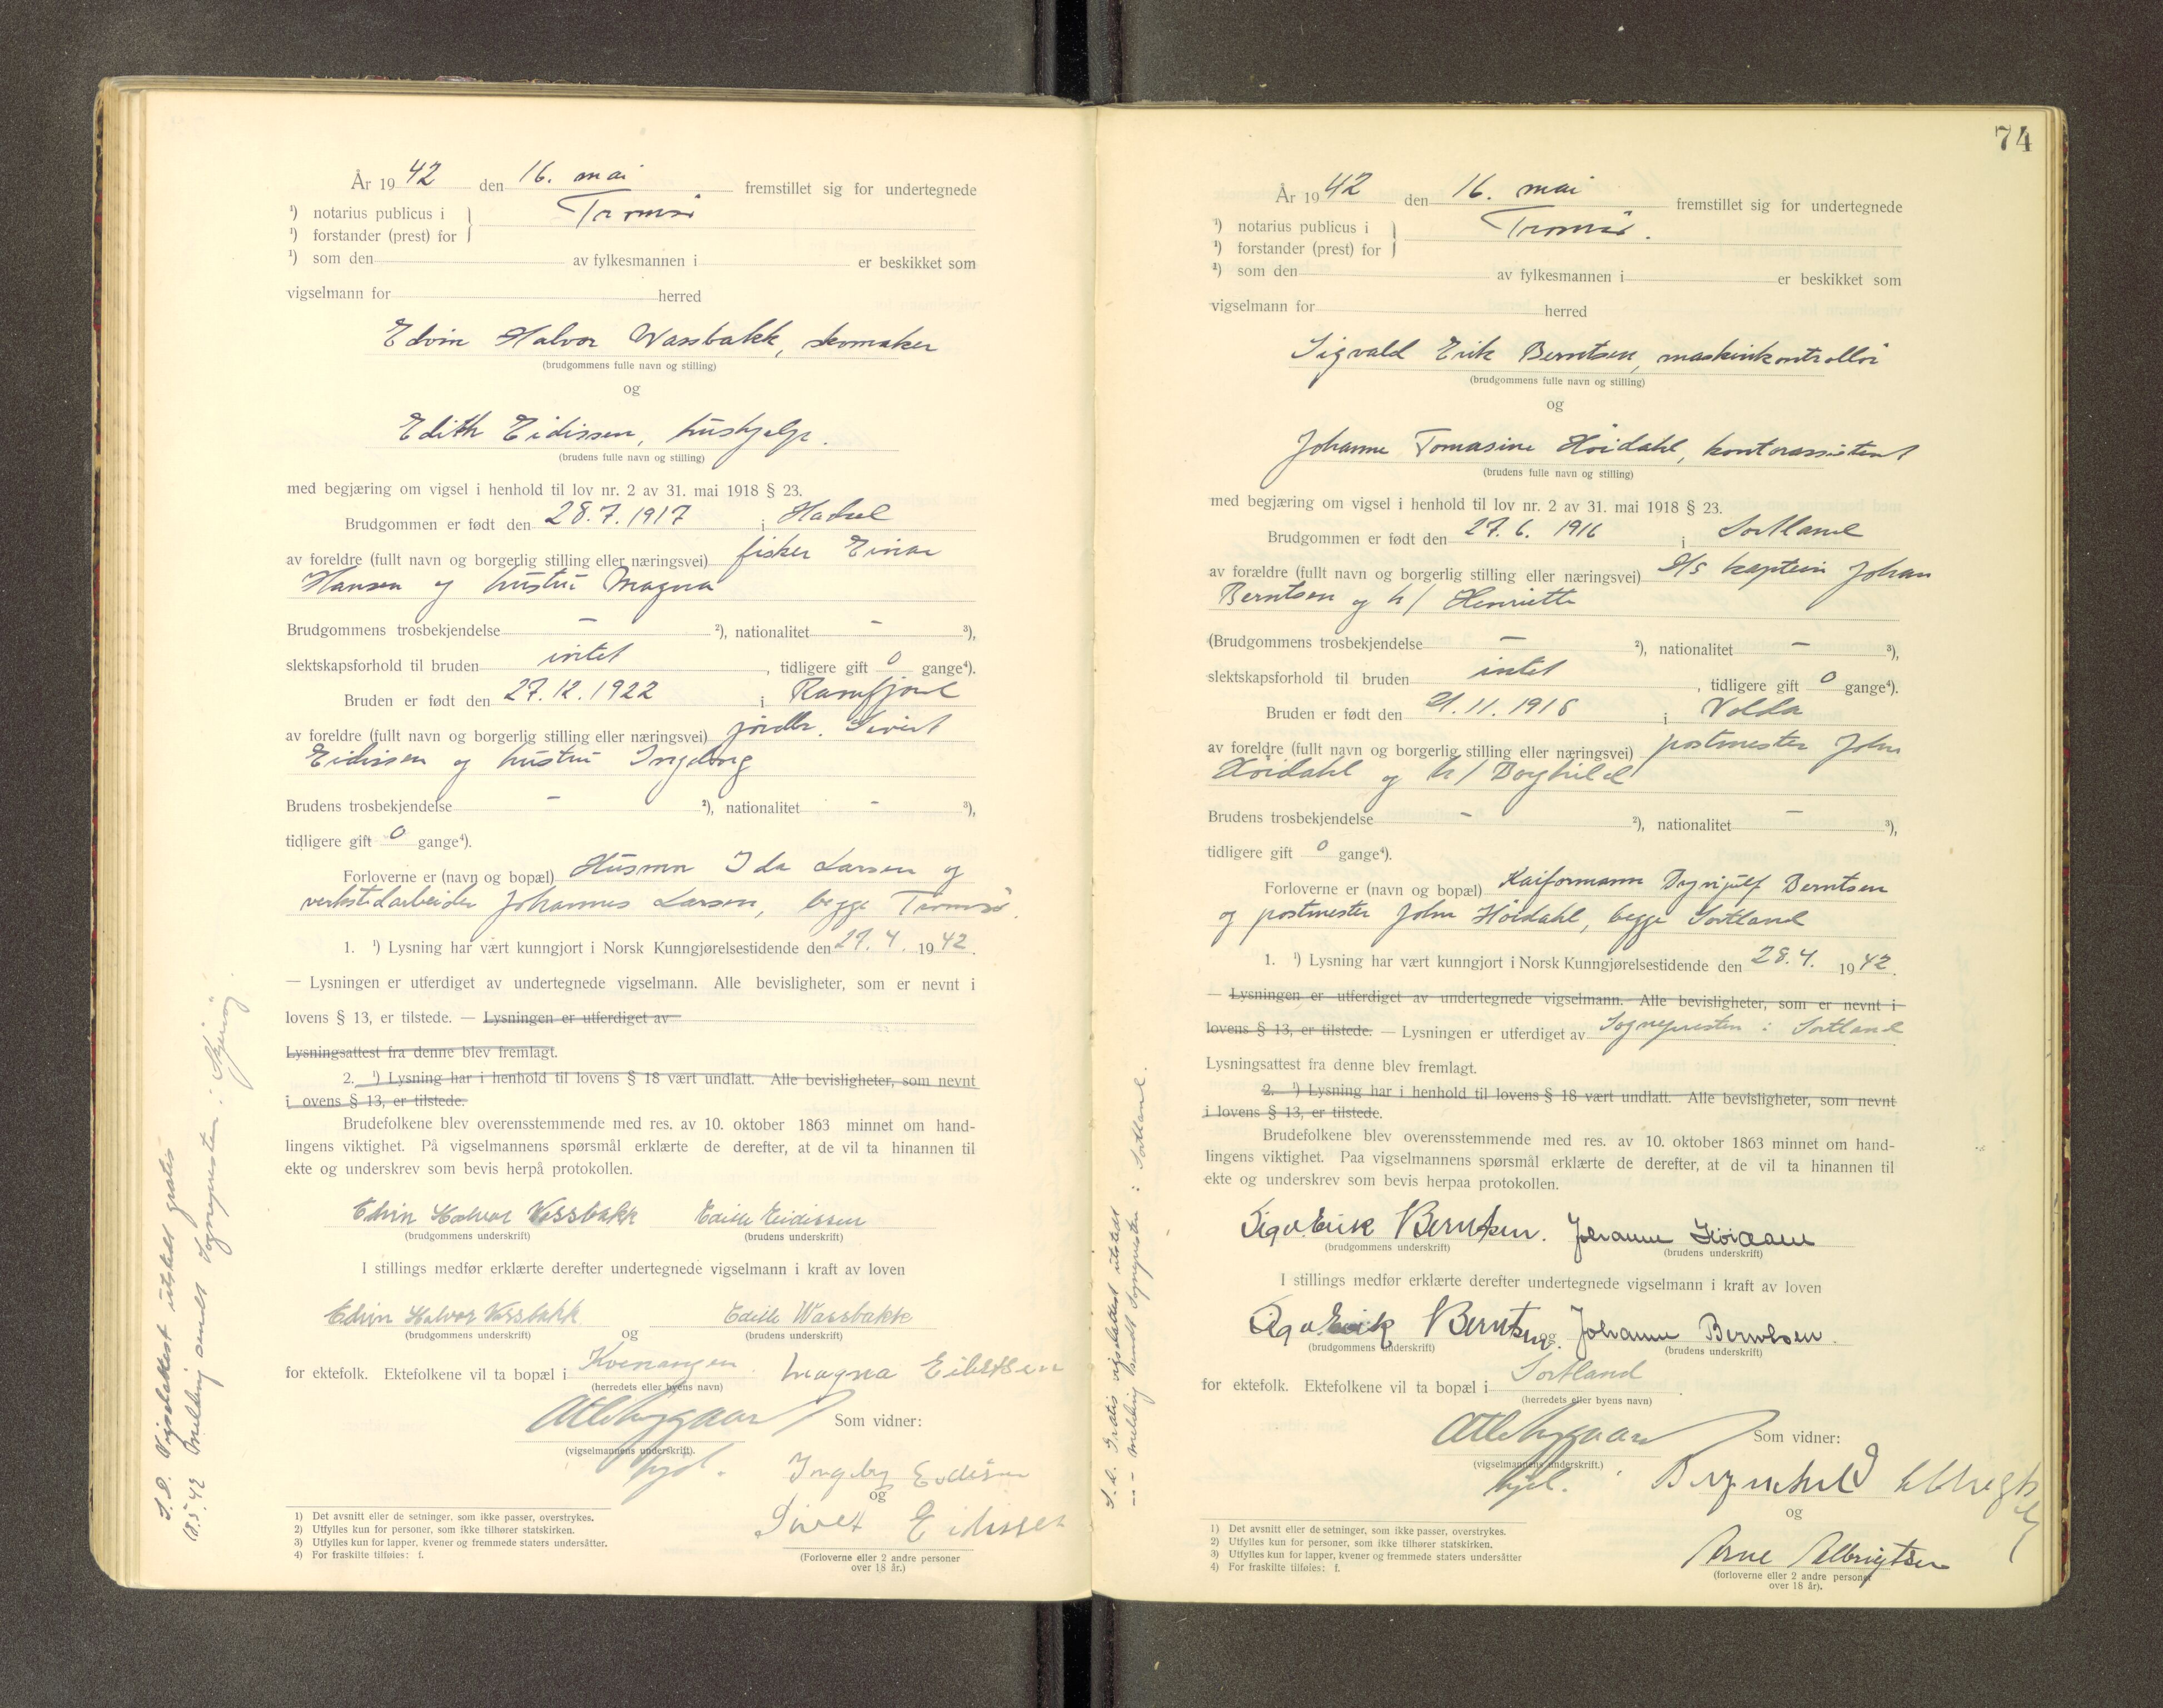 År 1942 den 16. mai fremstillet sig for undertegnede
¹) notarius publicus i } Tromsø
¹) forstander (prest) for
¹) som den av fylkesmannen i er beskikket som
vigselmann for herred
Edvin Halvor Wassbakk, skomaker
(brudgommens fulle navn og stilling)
og
Edith Eidissen, hushjelp.
(brudens fulle navn og stilling)
med begjæring om vigsel i henhold til lov nr. 2 av 31. mai 1918 § 23.
Brudgommen er født den 28.7.1917 i Hadsel
av foreldre (fullt navn og borgerlig stilling eller næringsvei) fisker Einar
Hansen og hustru Magna
Brudgommens trosbekjendelse - ²), nationalitet - ³),
slektskapsforhold til bruden intet, tidligere gift 0 gange⁴).
Bruden er født den 27.12.1922 i Ramfjord
av foreldre (fullt navn og borgerlig stilling eller næringsvei) jordbr. Sivert
Eidissen og hustru Ingeborg
Brudens trosbekjendelse - ²), nationalitet - ³),
tidligere gift 0 gange⁴).
Forloverne er (navn og bopæl) Husmor Ida Larsen og
verkstedarbeider Johannes Larsen, begge Tromsø.
1. ¹) Lysning har vært kunngjort i Norsk Kunngjørelsestidende den 29.4. 1942.
— Lysningen er utferdiget av undertegnede vigselmann. Alle bevisligheter, som er nevnt i
lovens § 13, er tilstede. — Lysningen er utferdiget av
Lysningsattest fra denne blev fremlagt.
2. ¹) Lysning har i henhold til lovens § 18 vært undlatt. Alle bevisligheter, som nevnt
i ovens § 13, er tilstede.
Brudefolkene blev overensstemmende med res. av 10. oktober 1863 minnet om hand-
lingens viktighet. På vigselmannens spørsmål erklærte de derefter, at de vil ta hinannen til
ekte og underskrev som bevis herpå protokollen.
Edvin Halvor Vassbakk Edith Eidissen
(brudgommens underskrift) (brudens underskrift)
I stillings medfør erklærte derefter undertegnede vigselmann i kraft av loven
Edvin Halvor Vassbakk Edith Wassbakk
(brudgommens underskrift) og (brudens underskrift)
for ektefolk. Ektefolkene vil ta bopæl i Kvenangen. Magna
(herredets eller byens navn)
Som vidner:
(vigselmannens underskrift).
fijd.
og
Sivert Eidissen
(Forloverne eller 2 andre personer
over 18 år.)
1) Det avsnitt eller de setninger, som ikke passer, overstrykes.
2) Utfylles kun for personer, som ikke tilhører statskirken.
3) Utfylles kun for lapper, kvener og fremmede staters undersåtter.
4) For fraskilte tilføies: f.
S.D. Vigselattest utstedt gratis
18.5.42 Melding sendt Sognepresten i Skjervøy.
74
År 1942 den 16. mai fremstillet sig for undertegnede
¹) notarius publicus i } Tromsø.
¹) forstander (prest) for
¹) som den av fylkesmannen i er beskikket som
vigselmann for herred
Sigvald Erik Berntsen, maskinkontrollør
(brudgommens fulle navn og stilling)
og
Johanne Tomasine Høidahl, kontorassistent
(brudens fulle navn og stilling)
med begjæring om vigsel i henhold til lov nr. 2 av 31. mai 1918 § 23.
Brudgommen er født den 27.6.1916 i Sortland
av forældre (fullt navn og borgerlig stilling eller næringsvei) D/S kaptein Johan
Berntsen og h/ Henriette
(Brudgommens trosbekjendelse - ²), nationalitet - ³),
slektskapsforhold til bruden intet, tidligere gift 0 gange⁴).
Bruden er født den 21.11.1918 i Volda
av foreldre (fullt navn og borgerlig stilling eller næringsvei) postmester John
Høidahl og h/ Borghild
Brudens trosbekjendelse - ²), nationalitet - ³),
tidligere gift 0 gange⁴).
Forloverne er (navn og bopæl) Kaiformann Brynjulf Berntsen
og postmester John Høidahl, begge Sortland
1. ¹) Lysning har vært kunngjort i Norsk Kunngjørelsestidende den 28.4. 1942.
— Lysningen er utferdiget av undertegnede vigselmann. Alle bevisligheter, som er nevnt i
lovens § 13, er tilstede. — Lysningen er utferdiget av Sognepresten i Sortland
Lysningsattest fra denne blev fremlagt.
2. ¹) Lysning har i henhold til lovens § 18 vært undlatt. Alle bevisligheter, som nevnt
i lovens § 13, er tilstede.
Brudefolkene blev overensstemmende med res. av 10. oktober 1863 minnet om hand-
lingens viktighet. Paa vigselmannens spørsmål erklærte de derefter, at de vil ta hinannen til
ekte og underskrev som bevis herpaa protokollen.
Sigv. Erik Berntsen. Johanne Høidahl
(brudgommens underskrift) (brudens underskrift)
I stillings medfør erklærte derefter undertegnede vigselmann i kraft av loven
Sigv. Erik Berntsen og Johanne Berntsen.
(brudgommens underskrift) (brudens underskrift)
for ektefolk. Ektefolkene vil ta bopæl i Sortland
(herredets eller byens navn)
Som vidner:
(vigselmannens underskrift.)
fijd.
og
Arne Albrigtsen
(forloverne eller 2 andre personer
over 18 år).
1) Det avsnitt eller de setninger, som ikke passer, overstrykes.
2) Utfylles kun for personer, som ikke tilhører statskirken.
3) Utfylles kun for lapper, kvener og fremmede staters undersåtter
4) For fraskilte tilføles: f.
S.D. Gratis vigselattest utstedt
-"- melding sendt Sognepresten i Sortland.